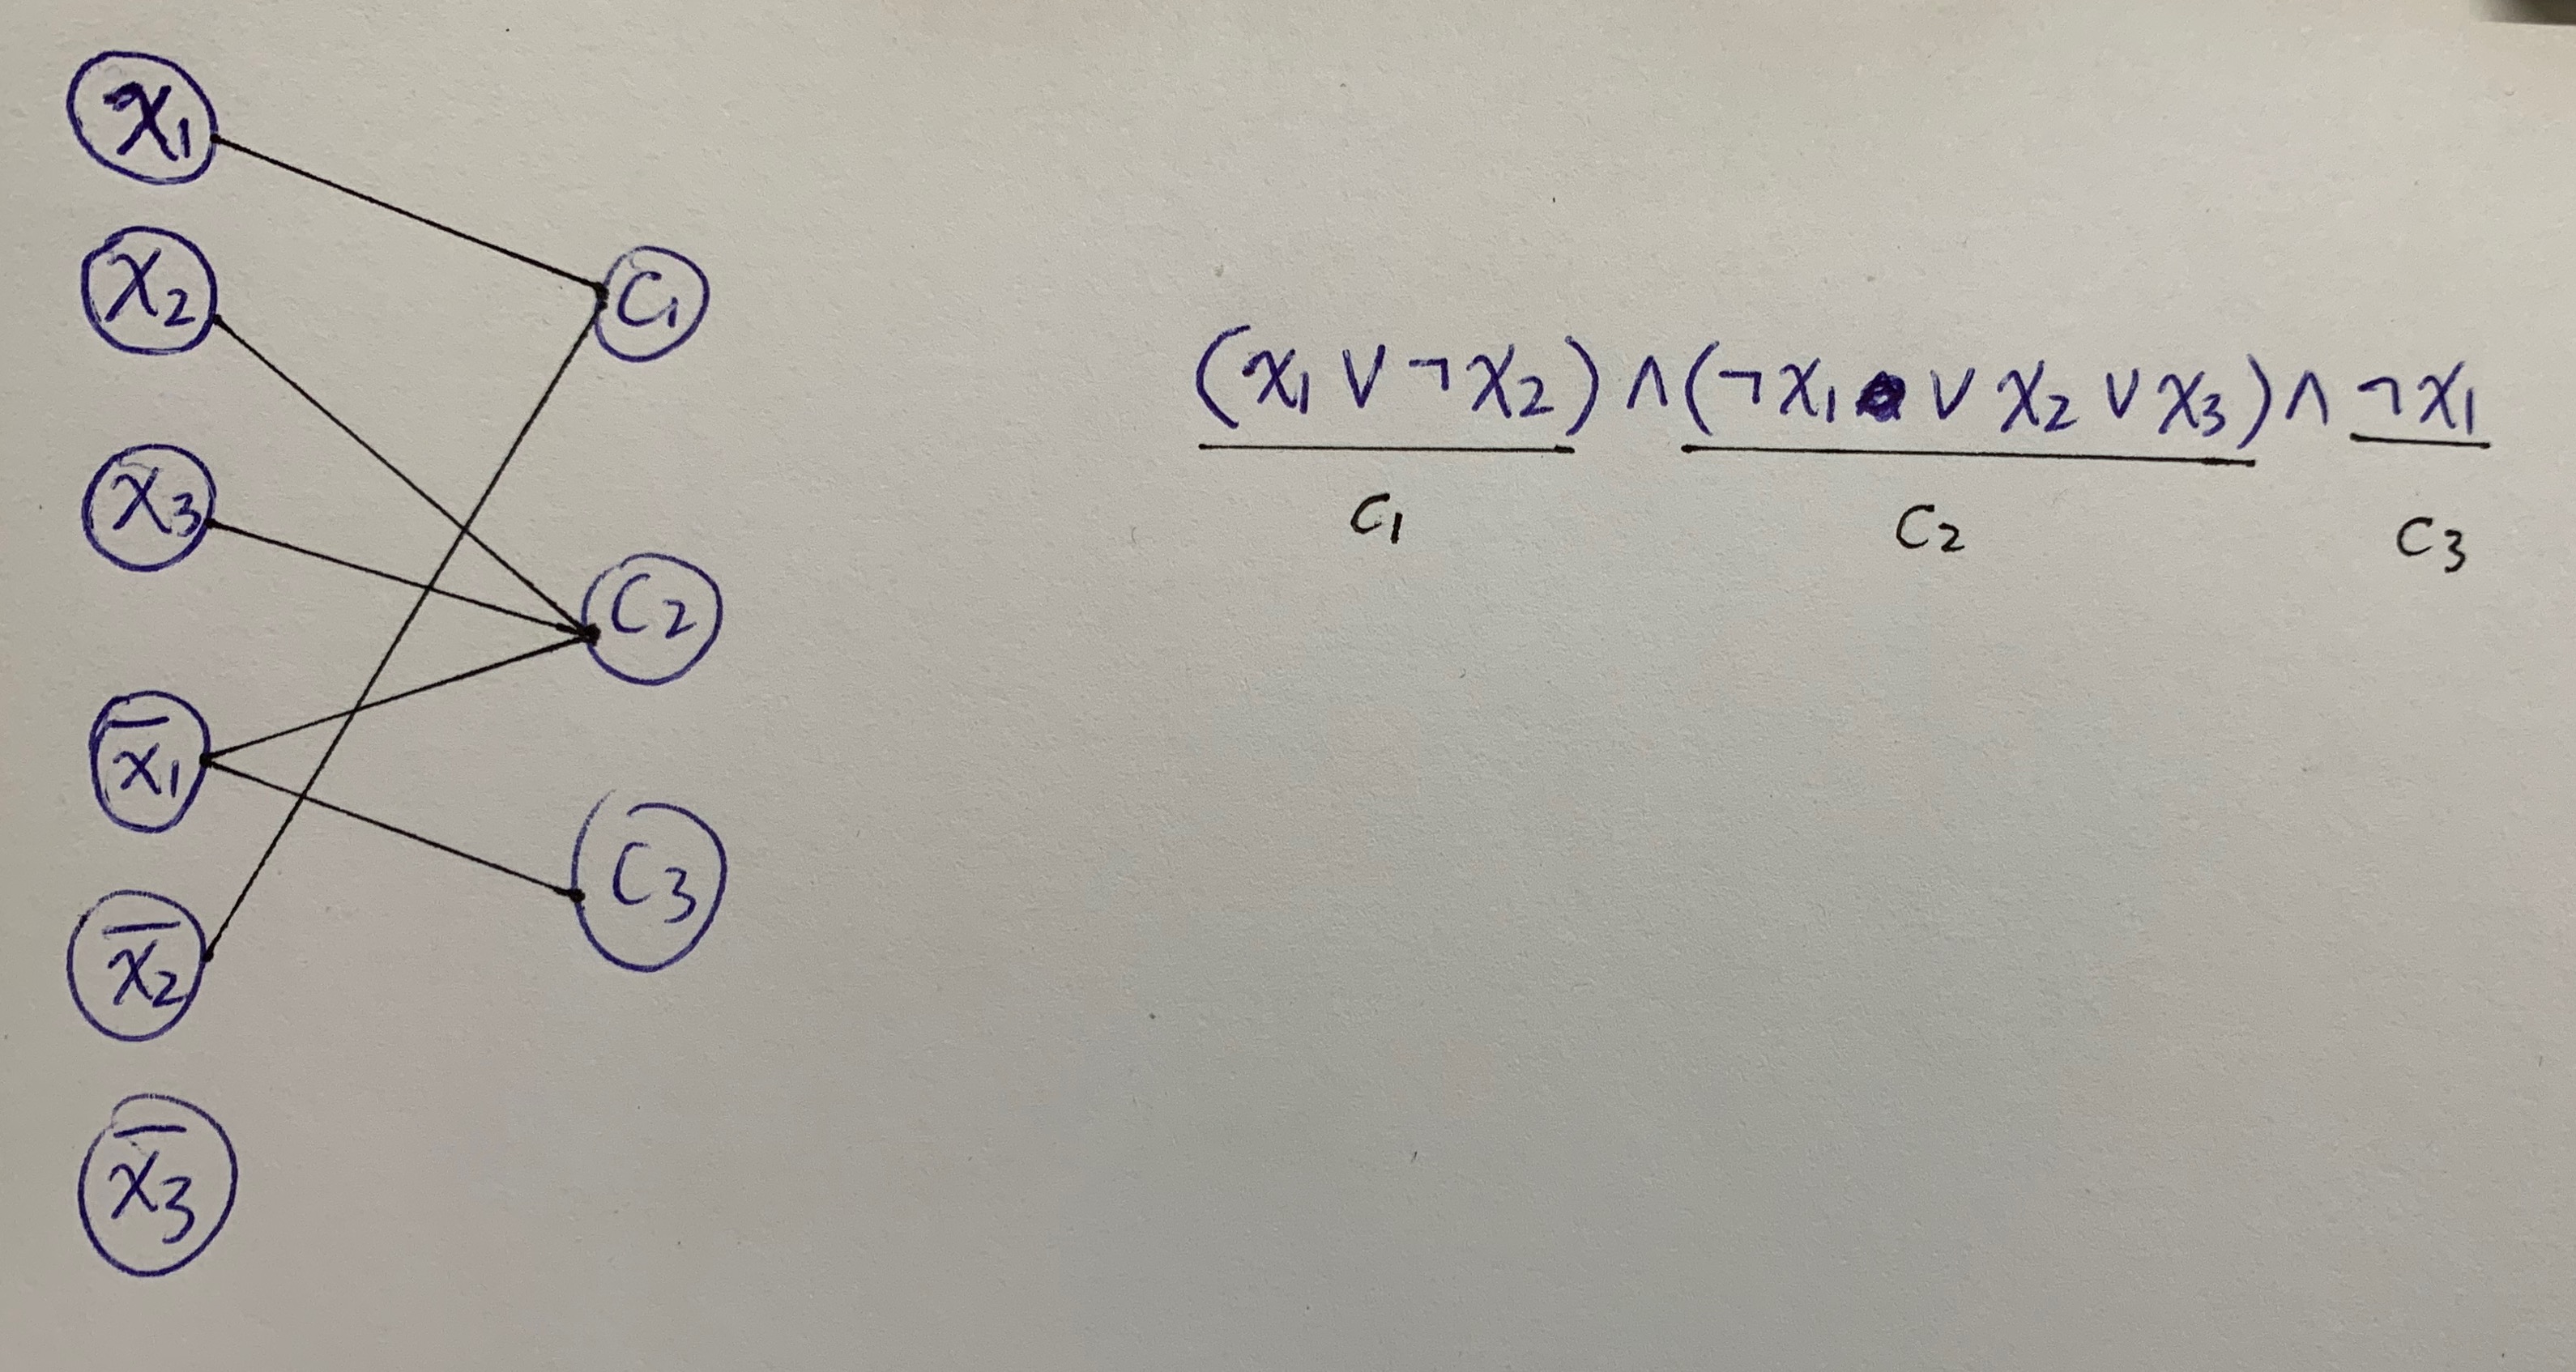 x₁
x₂
x₃
x̅₁
x̅₂
x̅₃
C₁
C₂
C₃
(x₁ ∨ ¬x₂) ∧ (¬x₁ ∨ x₂ ∨ x₃) ∧ ¬x₁
C₁ C₂ C₃